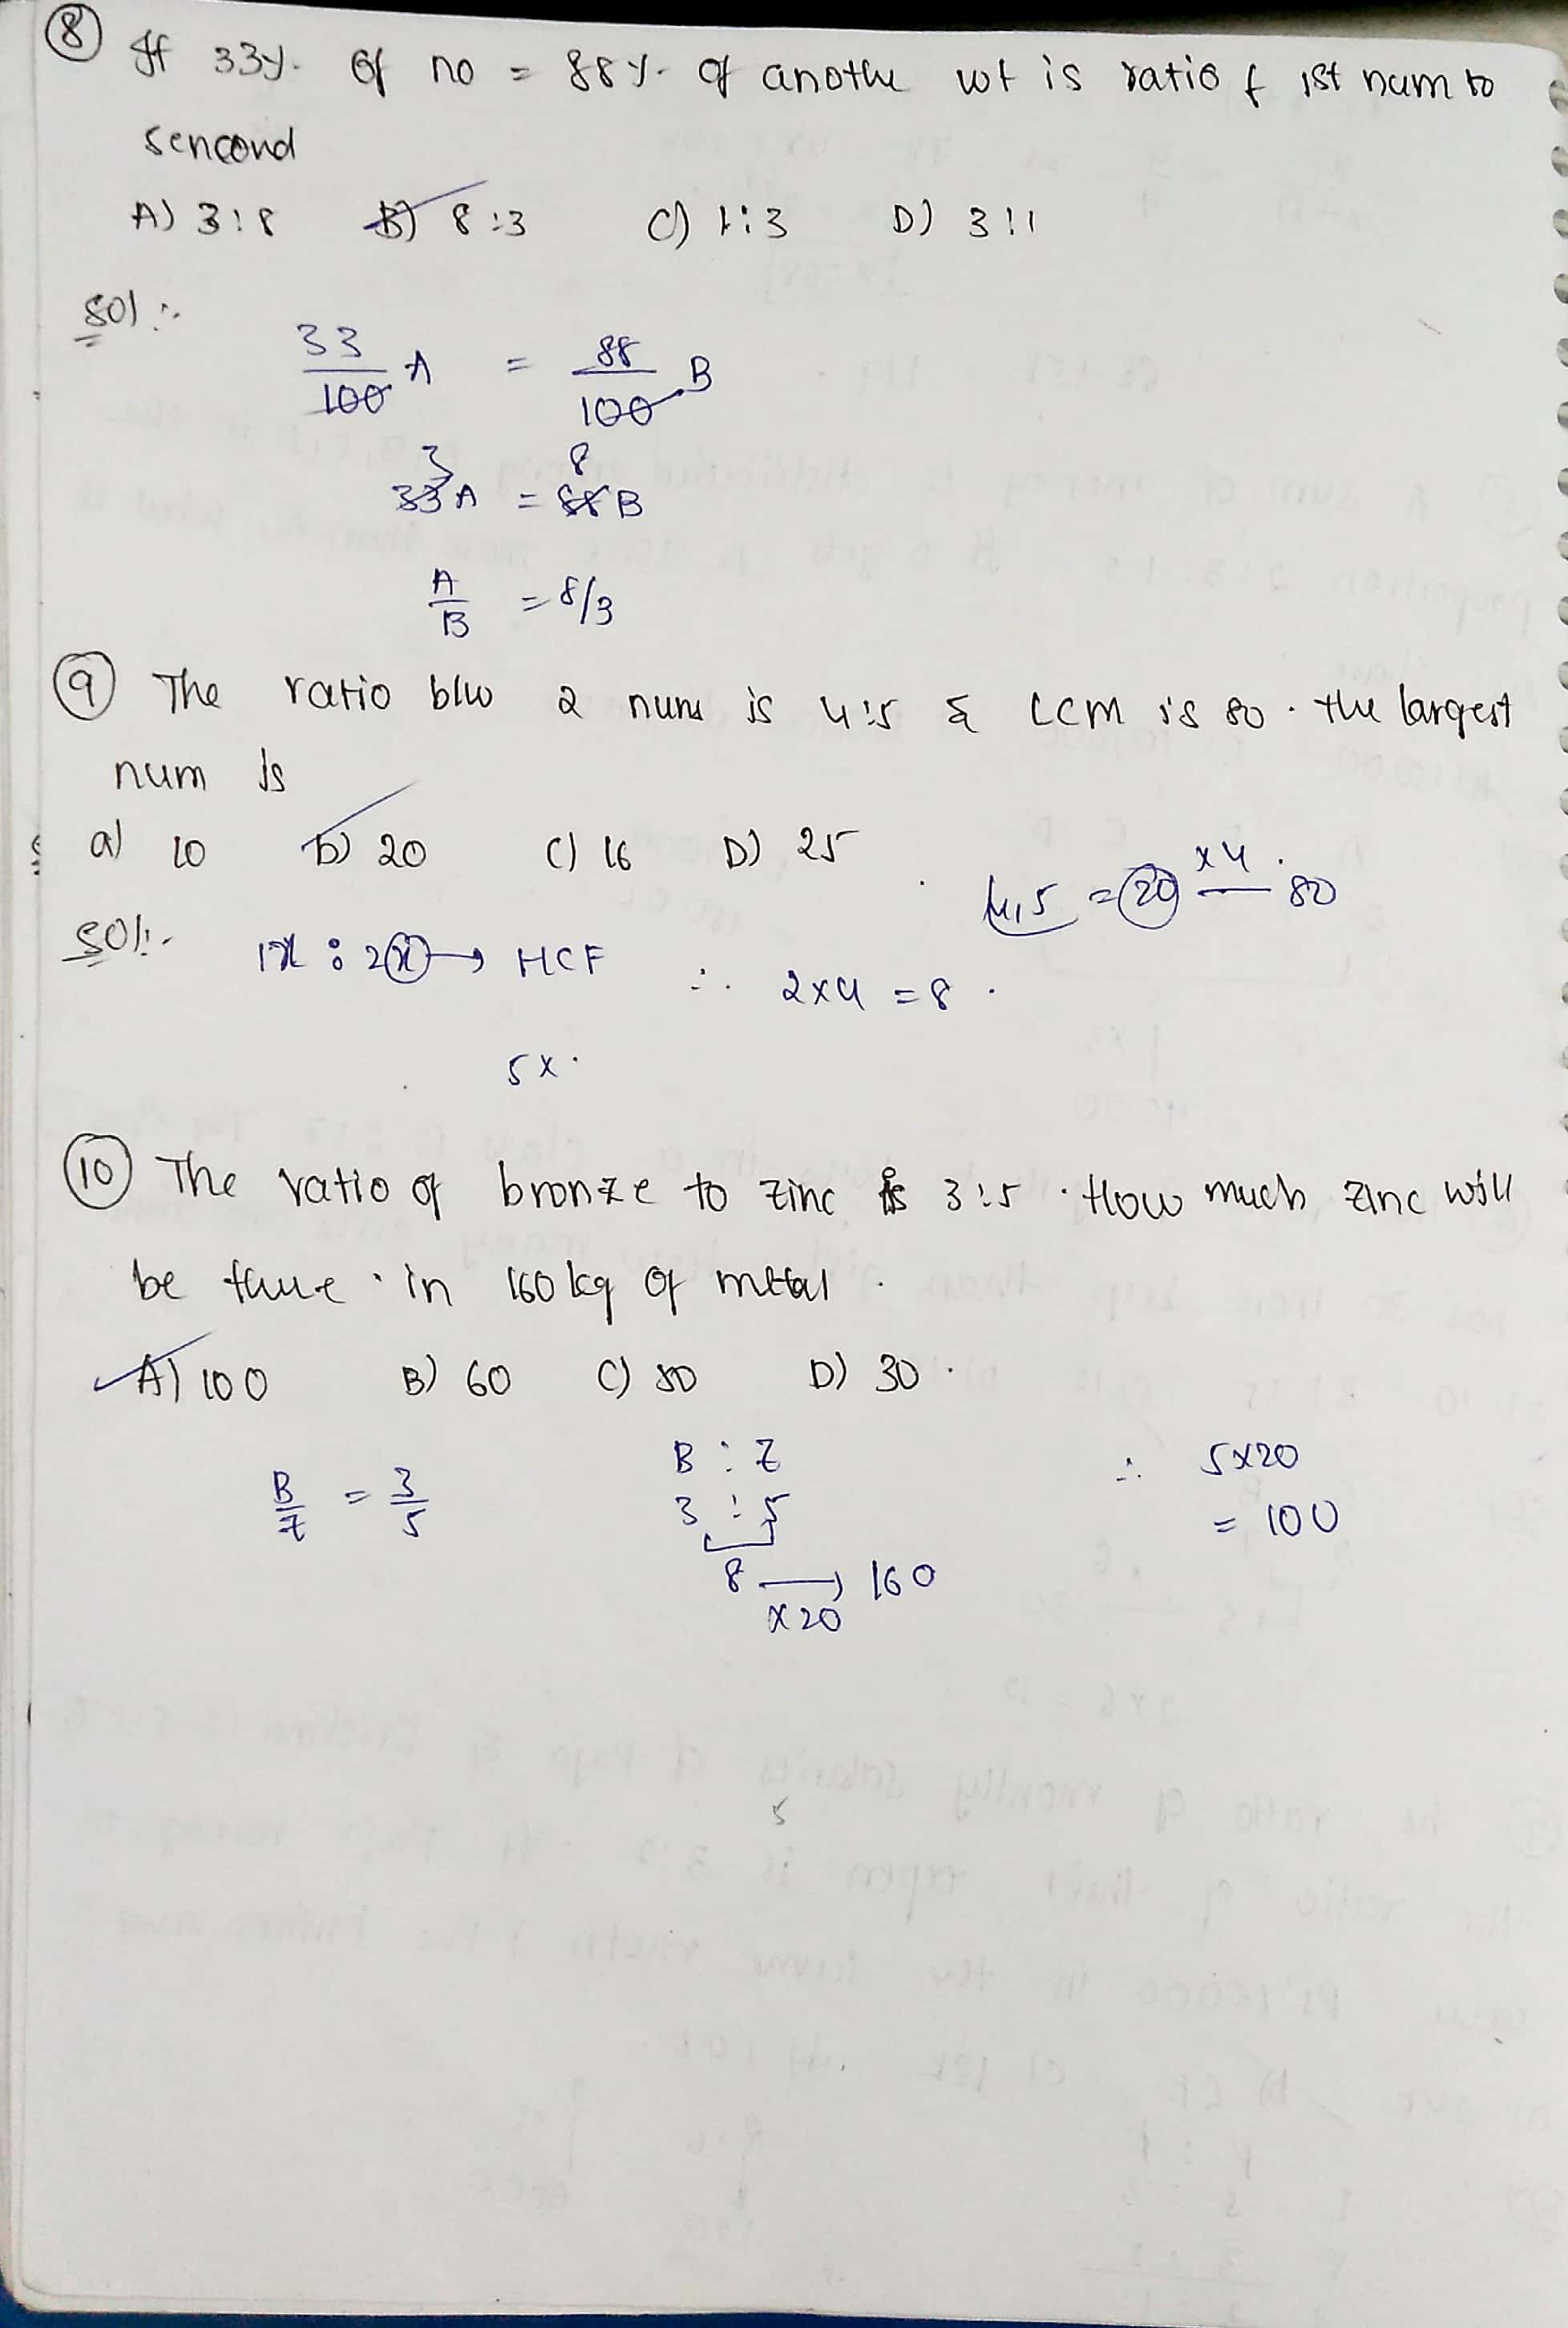 ⑧ If 33%. Of no = 88%. of anothe wt is ratio f 1st num to
sencond
A) 3:8 B) 8:3 C) 1:3 D) 3:1
Sol:-
33/100 A = 88/100 B
3 8
33A = 88B
A/B = 8/3
⑨ The ratio b/w 2 nums is 4:5 & LCM is 80. the largest
num is
a) 10 b) 20 C) 16 D) 25
4,5 = 20 x4 80
Sol:- 1x : 2x → HCF ∴ 2x4 = 8.
5x.
⑩ The ratio of bronze to zinc is 3:5. How much zinc will
be thue in 160kg of metal.
A) 100 B) 60 C) 80 D) 30.
B/Z = 3/5 B : Z ∴ 5x20
3 : 5 = 100
8 → 160
x20